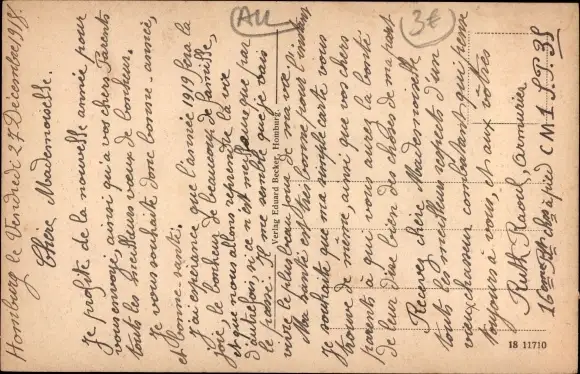 Homburg le Vendredi 27 Décembre 1918.
Chère Mademoiselle.
Je profite de la nouvelle année pour
vous envoyé, ainsi qu'a vos chers Parents
touts les meilleurs vœux de bonheur.
Je vous souhaite donc bonne année,
et bonne santé.
J'ai espérence que l'année 1919 sera la
joie, le bonheur de beaucoup de famille,
et que nous allons reprendre la vie
d'autrefois, si ce n'est meilleure que par
le passé. Il me semble que je vais
vivre le plus beau jour de ma vie.
Ma santé est très bonne pour l'instant
Je souhaite que ma simple carte vous
trouve de même ainsi que vos chers
parents à qui vous aurez la bonté
de leur dire bien des choses de ma part
Recevez chère Mademoiselle
touts les meilleurs respects d'un
vieux chasseur combatant qui pense
toujours à vous, et aux vôtres
Ruth Raoul, armurier
16ème Bton chrs à pied C M 1 S.P. 35
Verlag Eduard Becker, Homburg.
18 11710
AU
3€